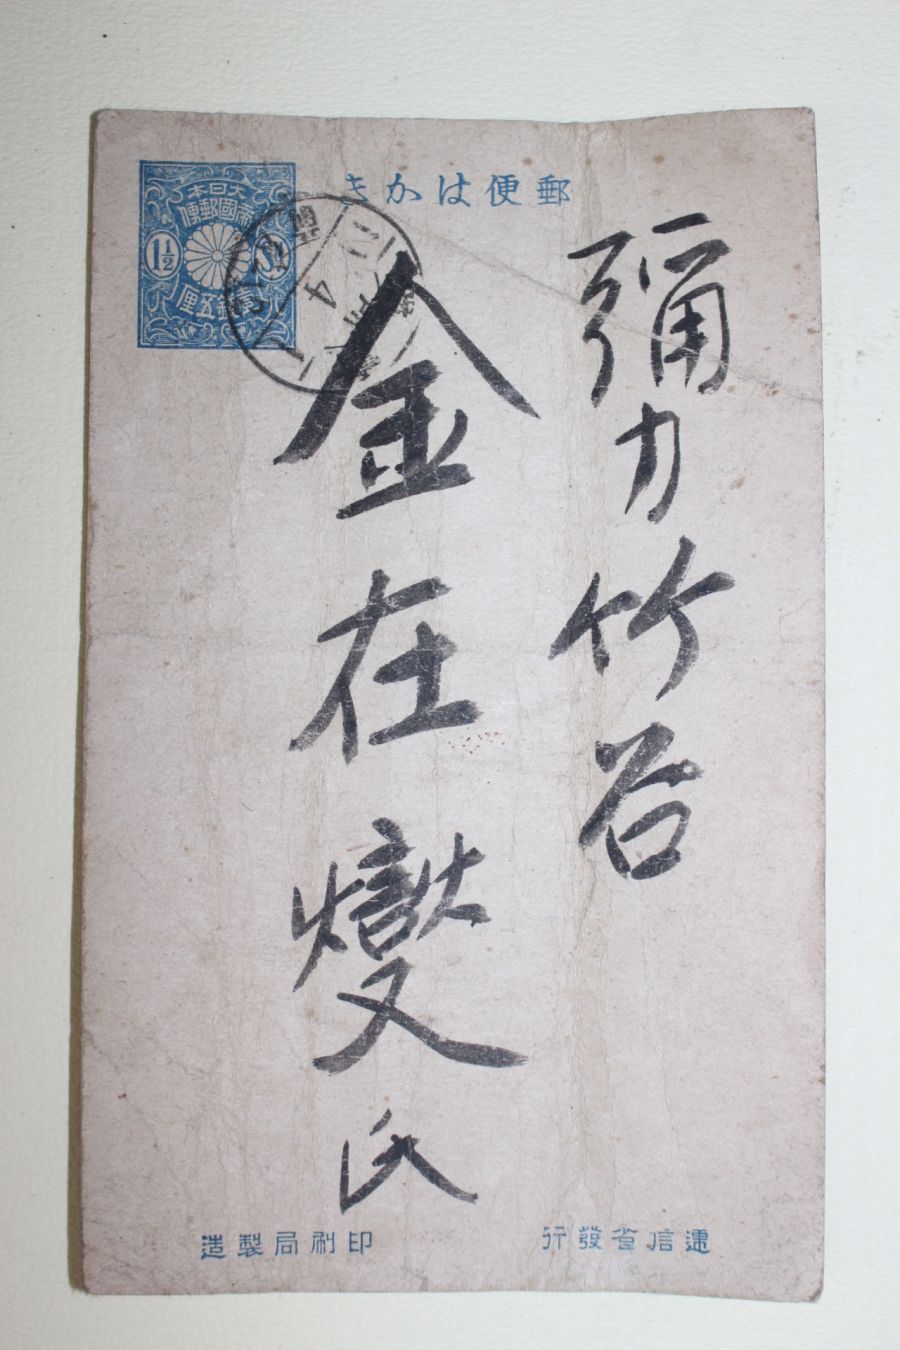 郵便はかき
大日本
帝國郵便
1½
壹錢五厘
4
彌力竹谷
金在燮氏
遞信省發行
印刷局製造